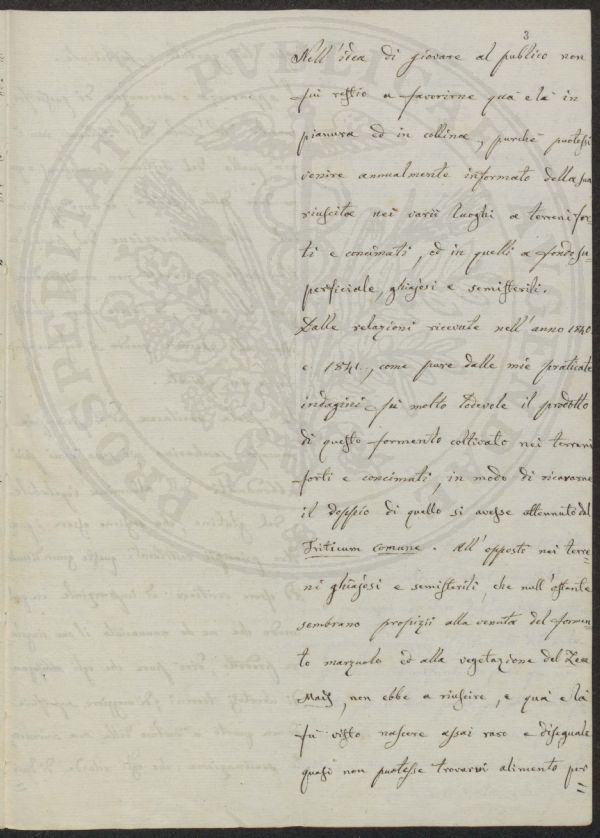 3
Nell'idea di giovare al publico non
fui restio a favorirne quà e là in
pianura ed in collina, purchè potessi
venire annualmente informato della sua
riuscita nei varii luoghi a terreni for-
ti e concimati, ed in quelli a fondo su-
perficiale, ghiajosi e semisterili.
Dalle relazioni ricevute nell'anno 1840.
e 1841., come pure dalle mie praticate
indagini fù molto lodevole il prodotto
di questo formento coltivato nei terreni
forti e concimati, in modo di ricavarne
il doppio di quello si avesse ottennuto dal
Triticum comune. All'opposto nei terre-
ni ghiajosi e semisterili, che null'ostante
sembrano propizii alla venuta del formen-
to marzuolo ed alla vegetazione del Zea
Mais, non ebbe a riuscire, e quà e là
fù visto nascere assai raro e diseguale
quasi non puotesse trovarvi alimento per
PROSPERITATI PUBLICAE AUGENDAE